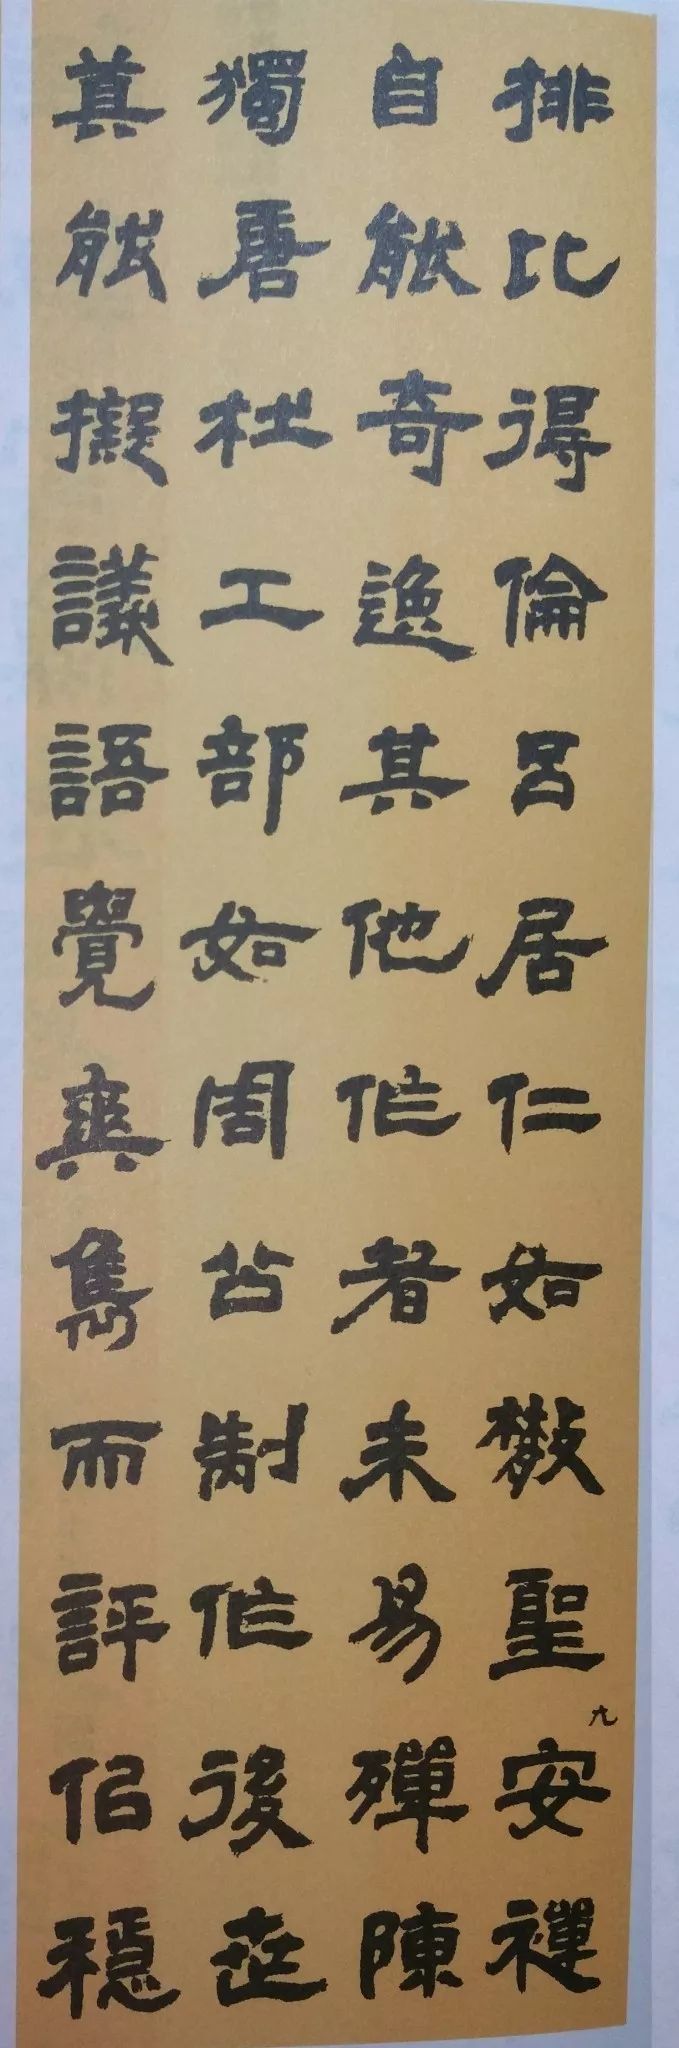 排比得倫呂居仁如散聖安禪
自能奇逸其他作者未易殫陳
獨唐杜工部如周公制作後世
莫能擬議語覺爽雋而評似穩